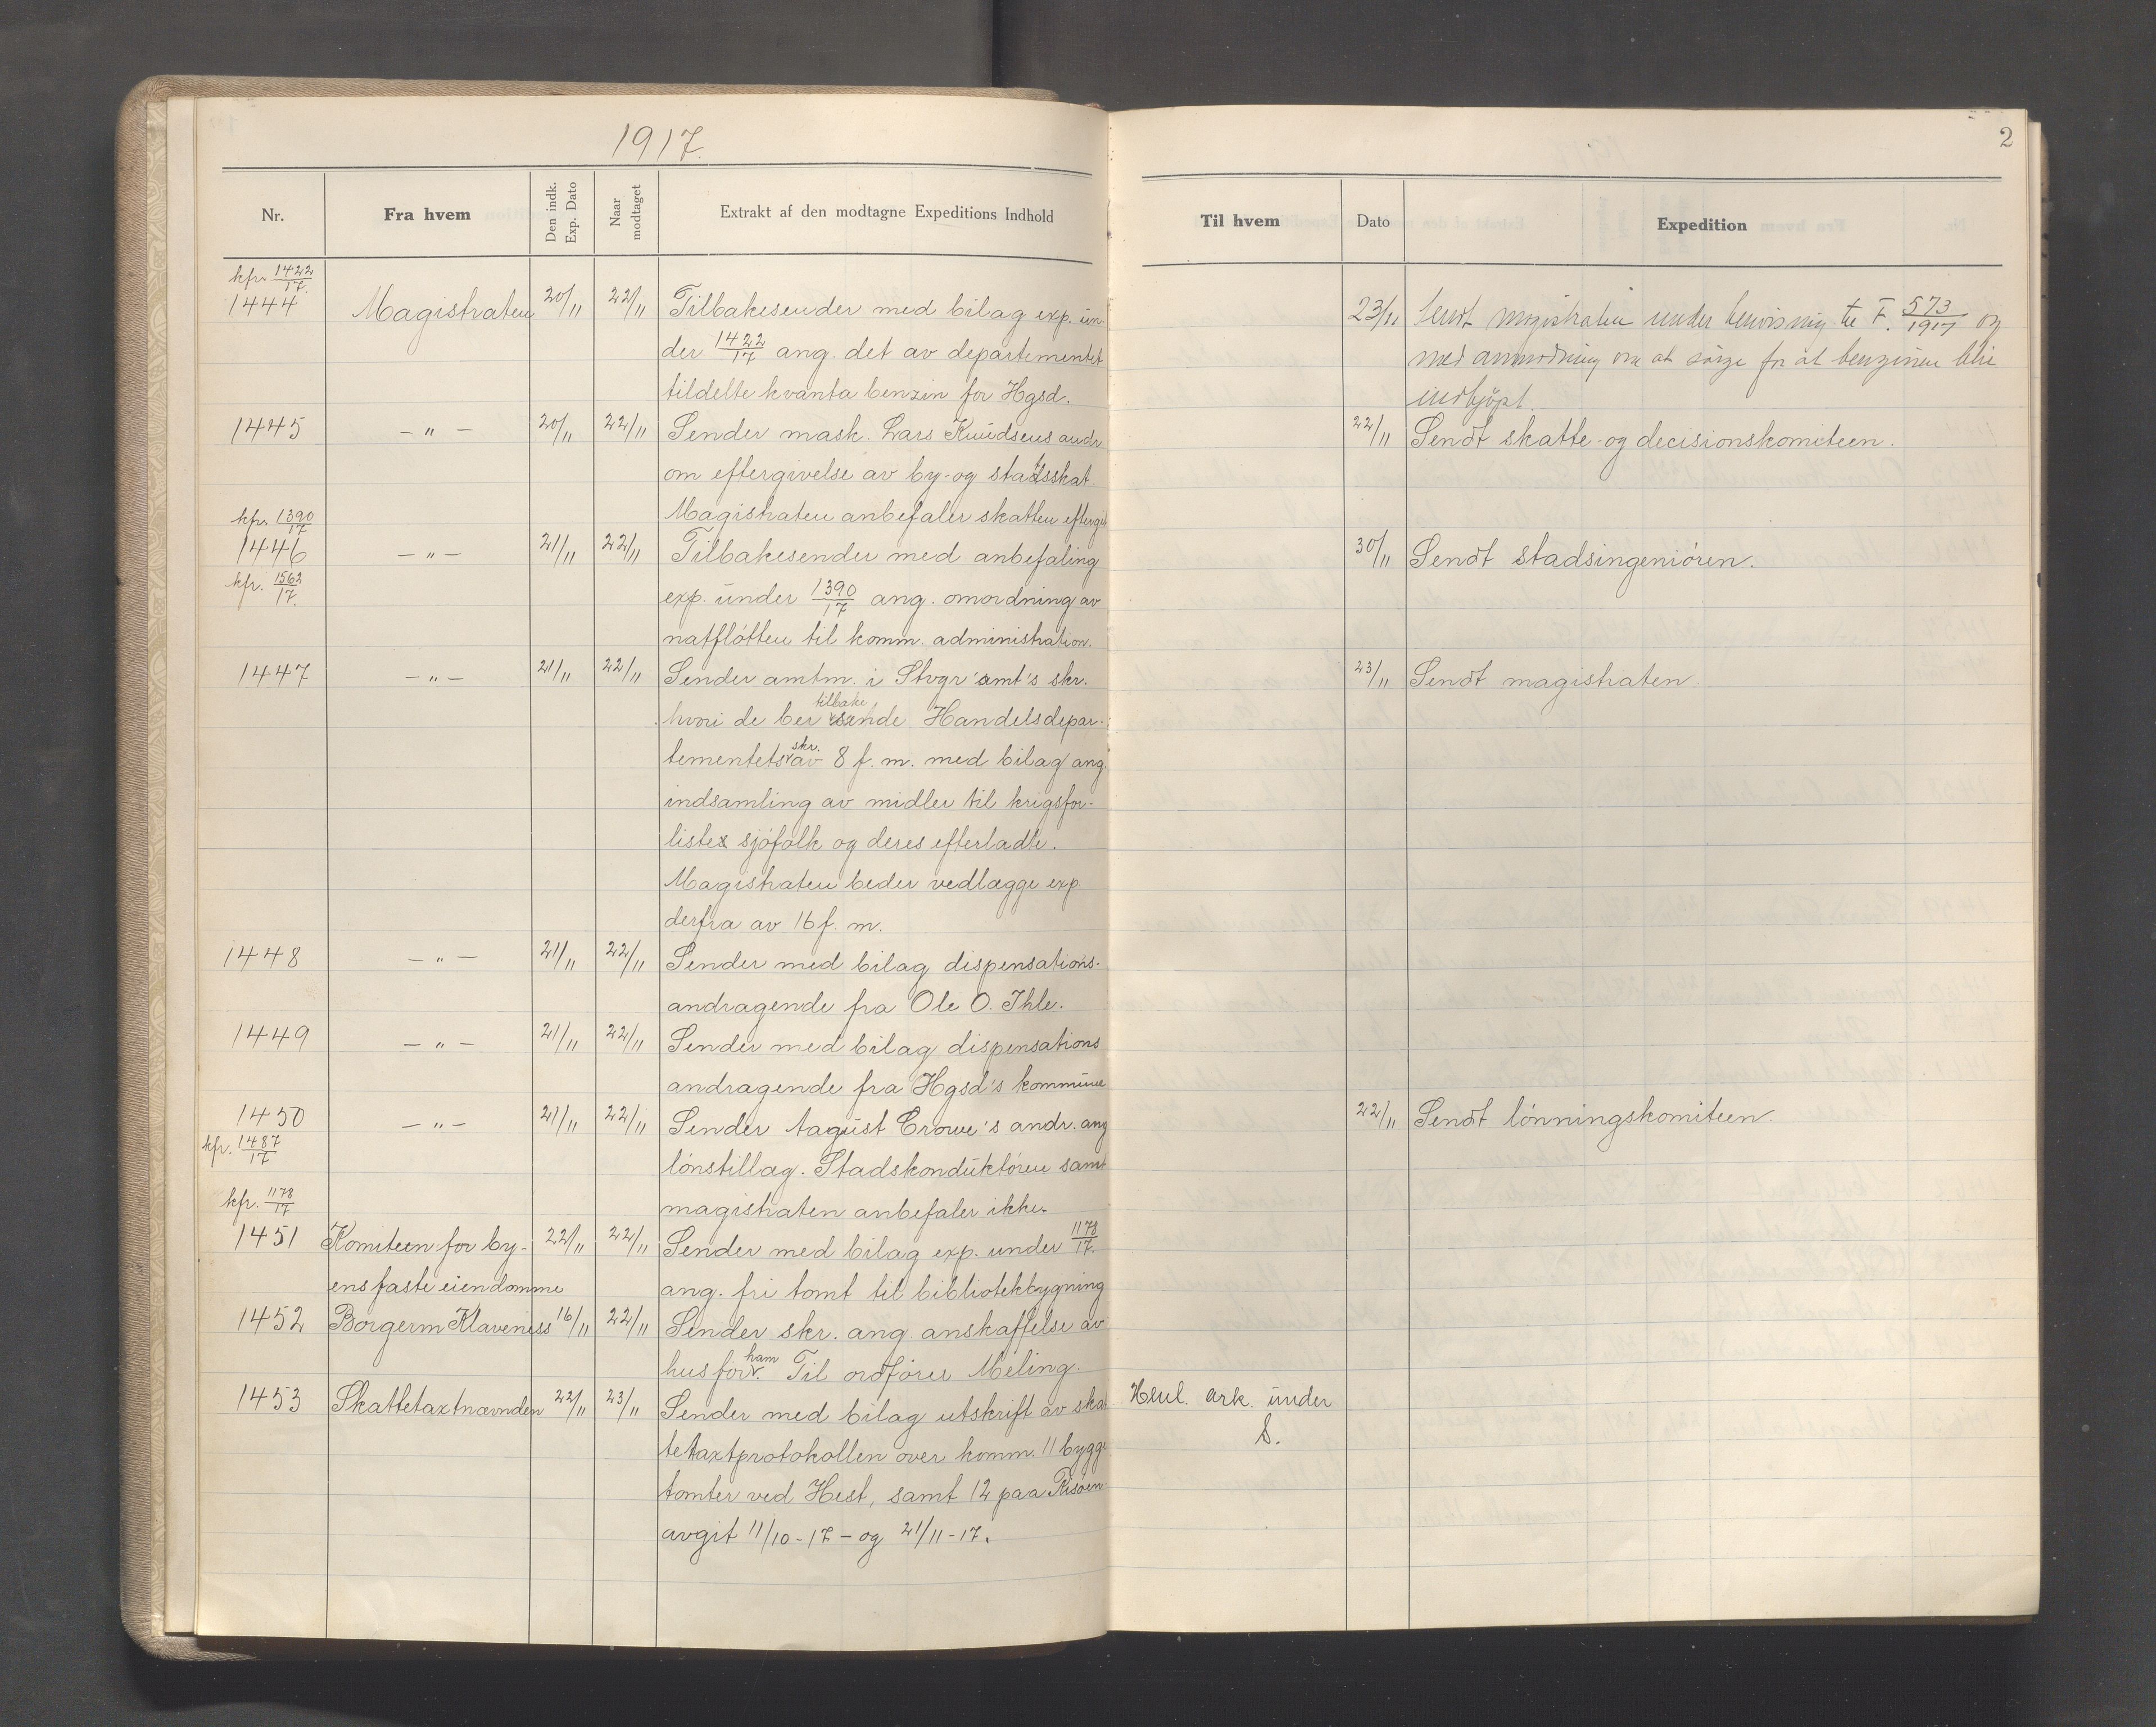 1917.
Nr.
Fra hvem
Den indk. Exp. Dato
Naar modtaget
Extrakt af den modtagne Expeditions Indhold
kfr. 1422/17.
1444 Magistraten 20/11 22/11 Tilbakesender med bilag exp. un-
der 1422/17 ang. det av departementet
tildelte kvanta benzin for Hgsd.
1445 — " — 20/11 22/11 Sender mask. Lars Knudsens andr.
om eftergivelse av by- og stadsskat.
Magistraten anbefaler skatten eftergit
kfr. 1390/17
1446 — " — 21/11 22/11 Tilbakesender med anbefaling
kfr. 1562/17.
exp. under 1390/17 ang. omordning av
natfløtten til komm. administration.
1447 — " — 21/11 22/11 Sender amtm. i Stvgr amt's skr.
hvori de ber tilbakesende Handelsdepar-
tementets skr. av 8 f. m. med bilag ang.
indsamling av midler til krigsfor-
liste sjøfolk og deres efterladte.
Magistraten beder vedlægge exp.
derfra av 16 f. m.
1448 — " — 21/11 22/11 Sender med bilag dispensations-
andragende fra Ole O. Ihle.
1449 — " — 21/11 22/11 Sender med bilag dispensations
andragende fra Hgsd's kommune
1450 — " — 21/11 22/11 Sender August Crowe's andr. ang
kfr. 1487/17
lønstillæg. Stadskonduktøren samt
magistraten anbefaler ikke.
kfr. 1178/17
1451 Komiteen for by- 22/11 22/11 Sender med bilag exp. under 1178/17.
ens faste eiendomme ang. fri tomt til bibliotekbygning
1452 Borgerm Klaveness 16/11 22/11 Sender skr. ang. anskaffelse av
hus for ham. Til ordfører Meling.
1453 Skattetaxtnævnden 22/11 23/11 Sender med bilag utskrift av skat
tetaxtprotokollen over komm. 11 bygge
tomter ved Hest, samt 12 paa Risøen
avgit 11/10-17 – og 21/11-17.
2
Til hvem
Dato
Expedition
23/11 Sendt magistraten under henvisning til F. 573/1917 og
med anmodning om at sørge for at benzinen blir
indkjøpt.
22/11 Sendt skatte- og decisionskomiteen.
30/11 Sendt stadsingeniøren.
23/11 Sendt magistraten
22/11 Sendt lønningskomiteen.
Henl. ark. under
S.